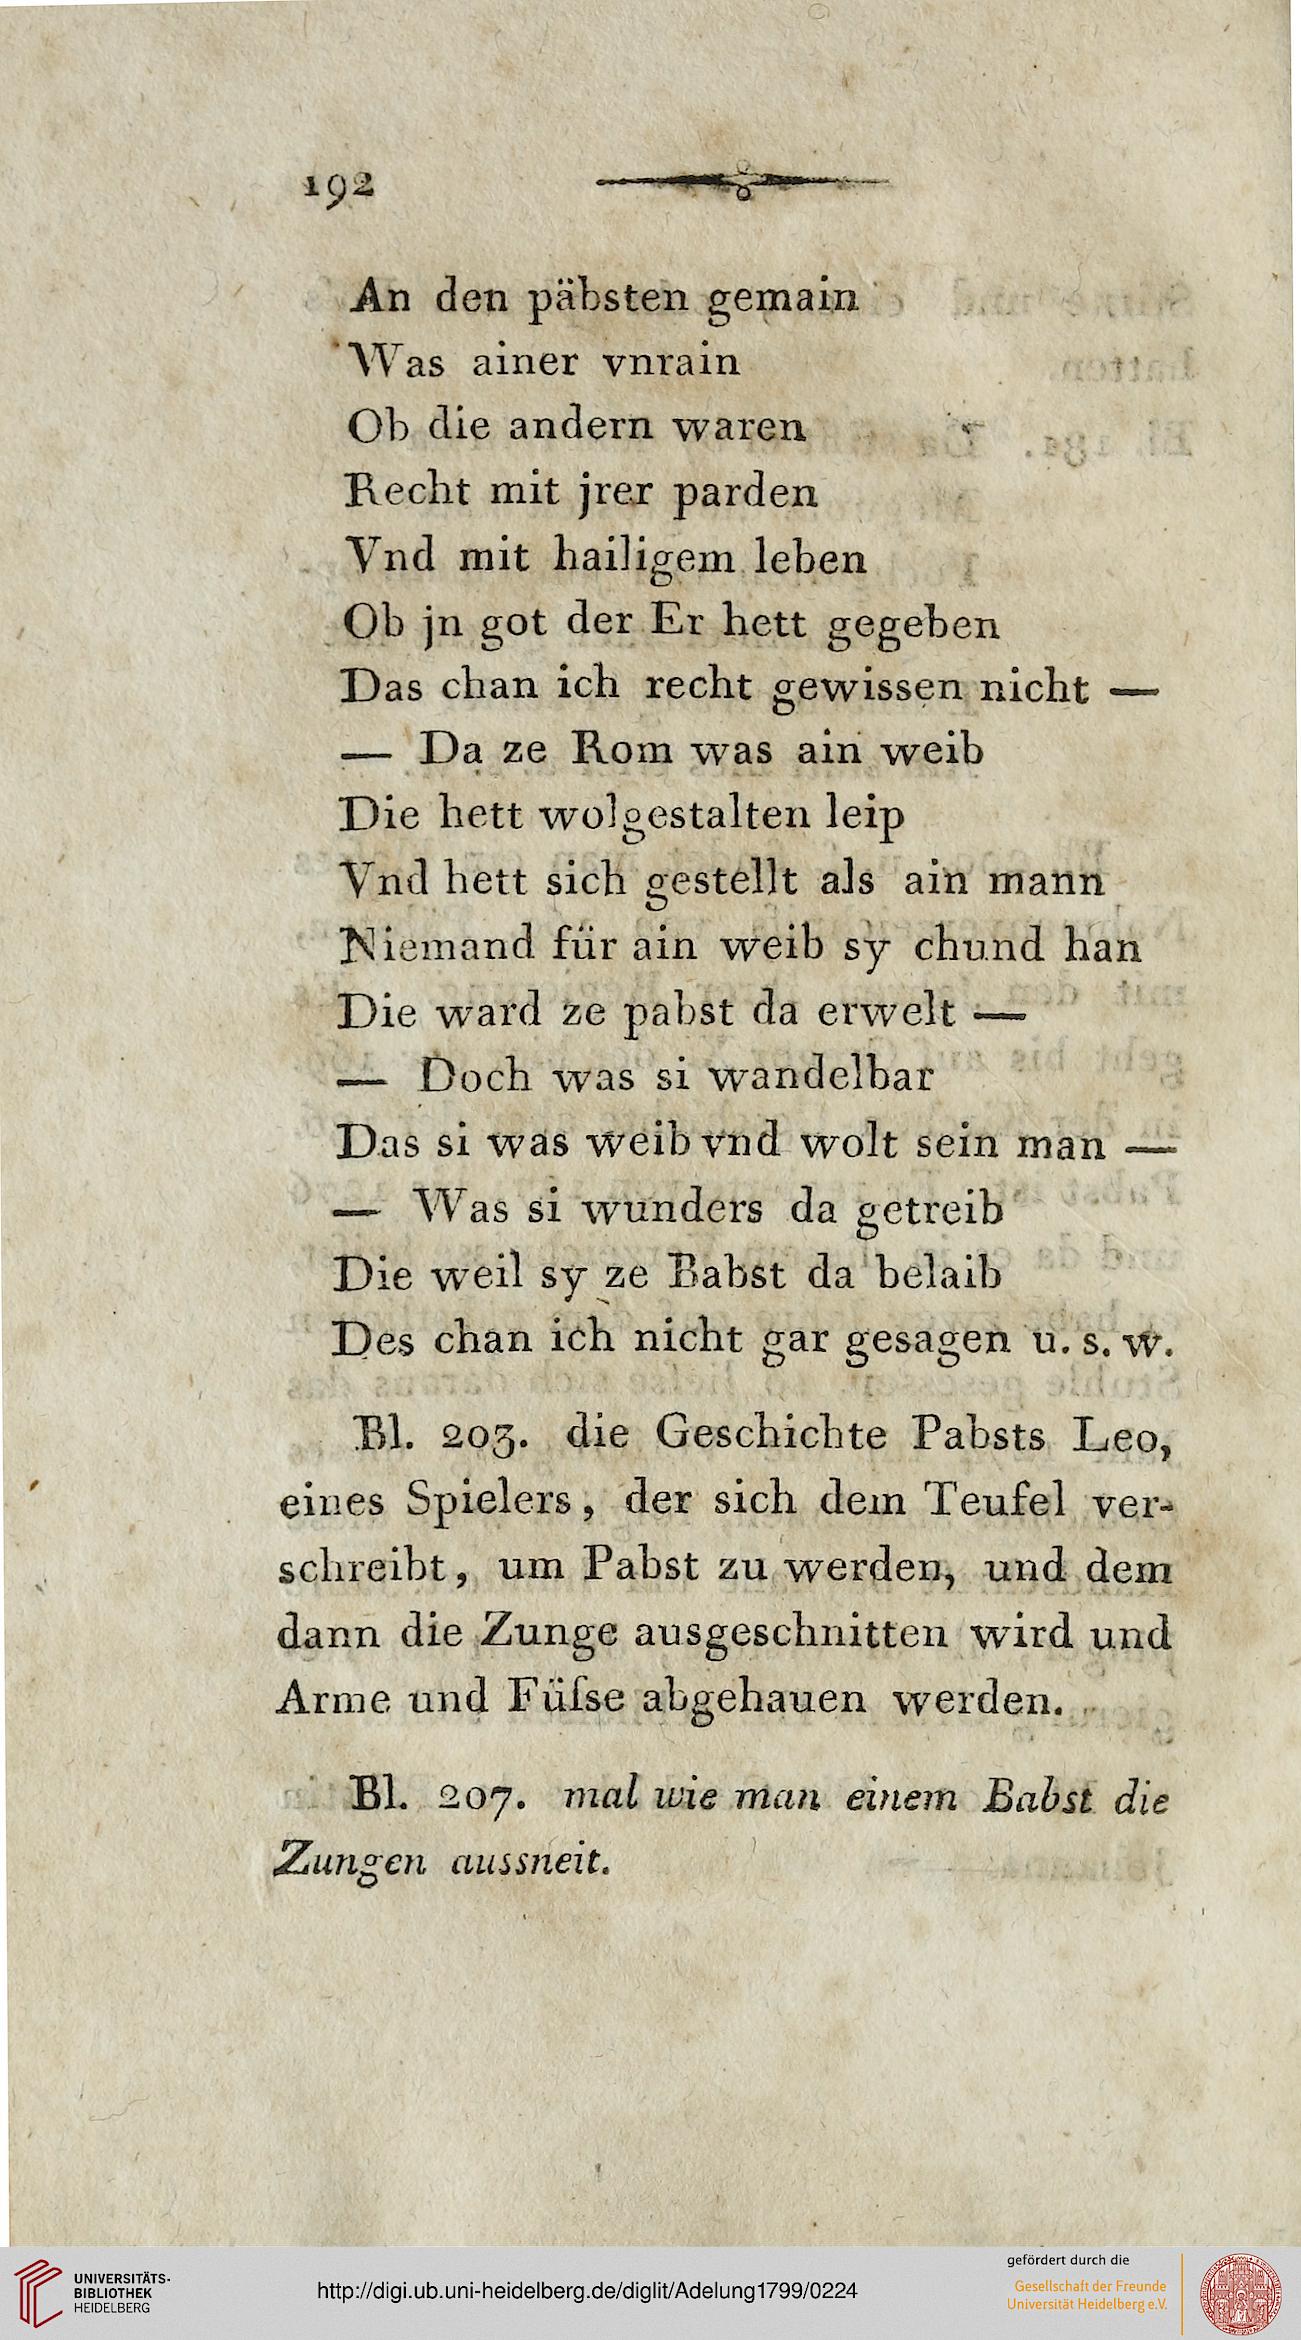 192
An den päbsten gemain
Was ainer vnrain
Ob die andern waren
Recht mit jrer parden
Vnd mit hailigem leben
Ob jn got der Er hett gegeben
Das chan ich recht gewissen nicht —
— Da ze Rom was ain weib
Die hett wolgestalten leip
Vnd hett sich gestellt als ain mann
Niemand für ain weib sy chund han
Die ward ze pabst da erwelt —
— Doch was si wandelbar
Das si was weib vnd wolt sein man —
— Was si wunders da getreib
Die weil sy ze Babst da belaib
Des chan ich nicht gar gesagen u. s. w.
Bl. 203. die Geschichte Pabsts Leo,
eines Spielers, der sich dem Teufel ver-
schreibt, um Pabst zu werden, und dem
dann die Zunge ausgeschnitten wird und
Arme und Füſse abgehauen werden.
Bl. 207. mal wie man einem Babst die
Zungen aussneit.
UNIVERSITÄTS-
BIBLIOTHEK
HEIDELBERG
http://digi.ub.uni-heidelberg.de/diglit/Adelung1799/0224
gefördert durch die
Gesellschaft der Freunde
Universität Heidelberg e.V.